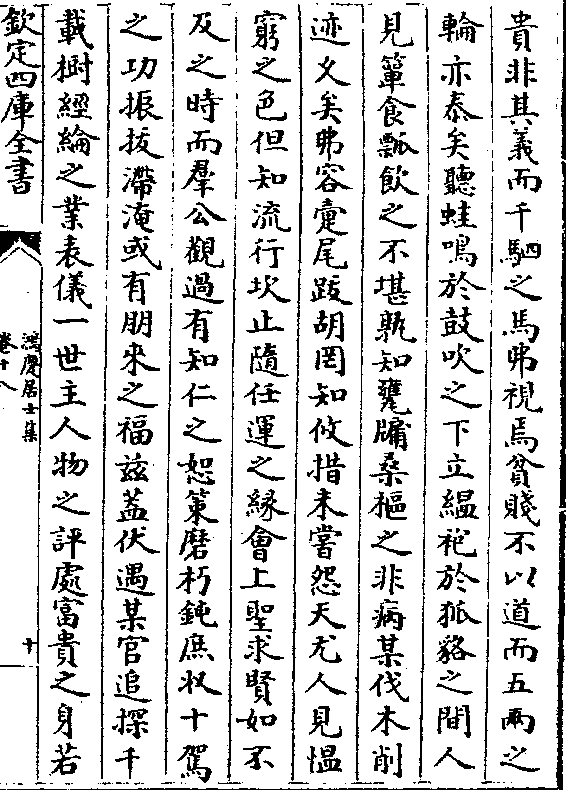 貴非其義而千駟之馬弗視焉貧賤不以道而五兩之
輪亦泰矣聽蛙鳴於鼓吹之下立縕袍於狐貉之間人
見簞食瓢飲之不堪孰知甕牖桑樞之非病某伐木削
迹久矣弗容疐尾跋胡罔知攸措未嘗怨天尤人見慍
窮之色但知流行坎止隨任運之緣會上聖求賢如不
及之時而羣公觀過有知仁之恕策磨朽鈍庶收十駕
之功振拔滯淹或有朋來之福茲蓋伏遇某官追探千
載榭經綸之業表儀一世主人物之評處富貴之身若
欽定四庫全書
鴻慶居士集
卷十八
十